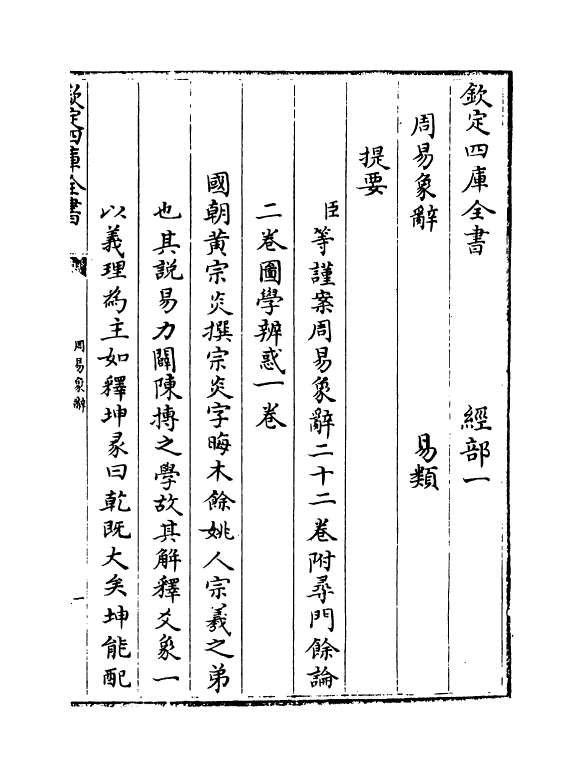 欽定四庫全書　　　　　經部一
周易象辭　　　　　　　易類
提要
臣等謹案周易象辭二十二卷附尋門餘論
二卷圖學辨惑一卷
國朝黄宗炎撰宗炎字晦木餘姚人宗羲之弟
也其説易力闢陳摶之學故其解釋爻象一
以義理為主如釋坤彖曰乾既大矣坤能配
欽定四庫全書
周易象辭
一